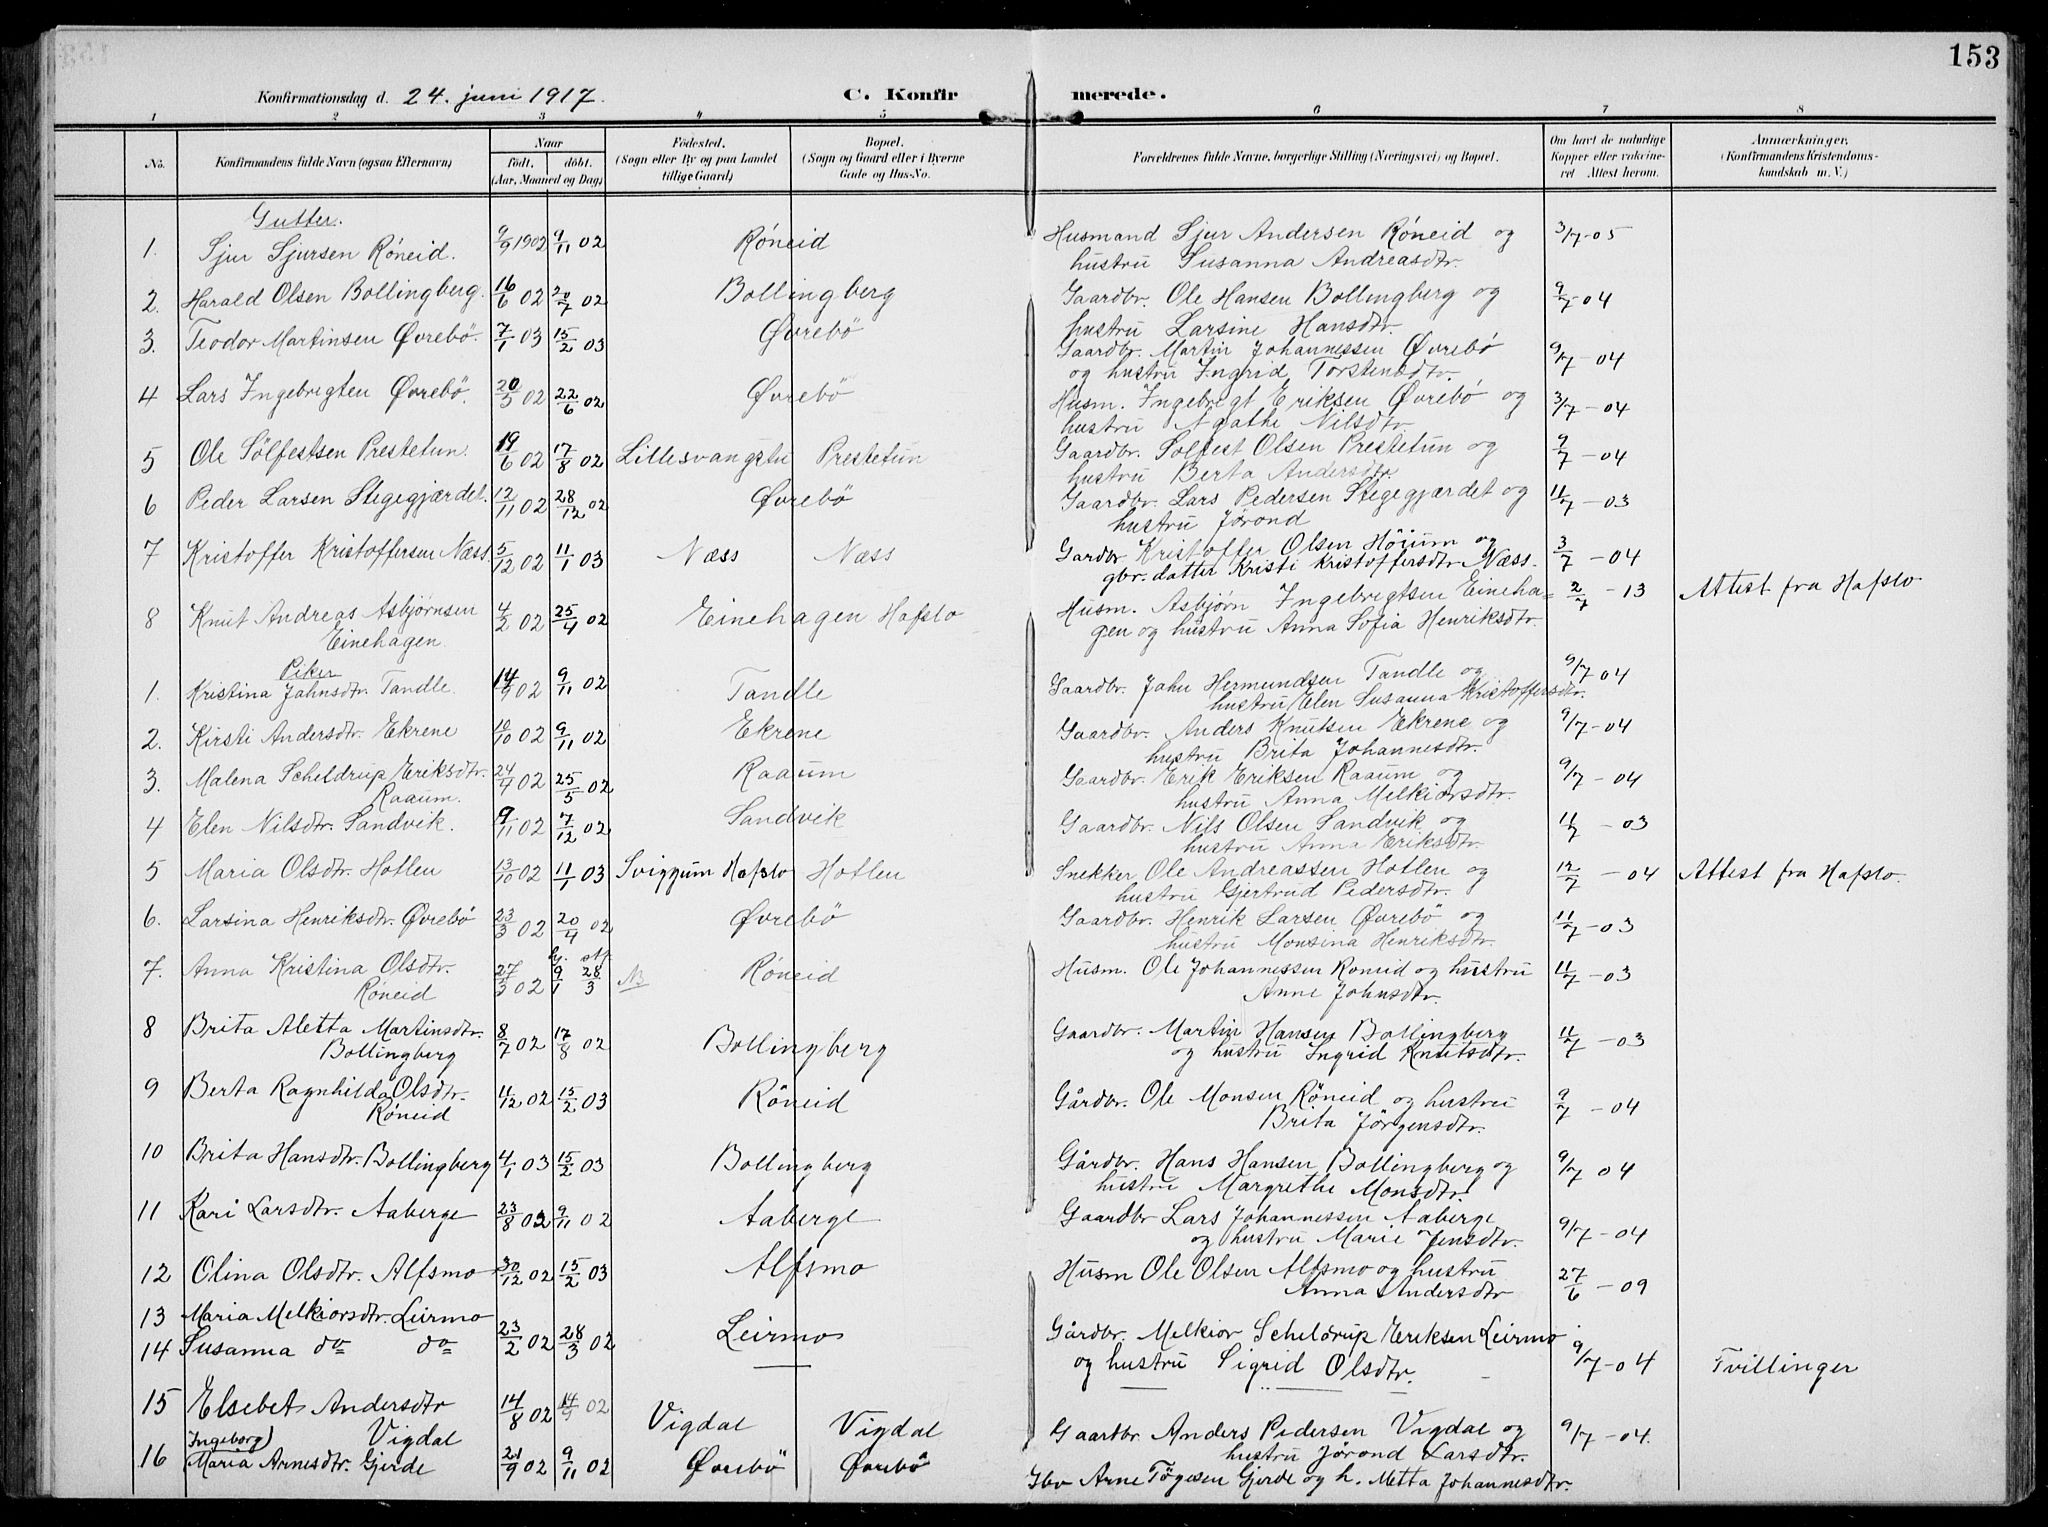 153
Konfirmationsdag d. 24. juni 1917. C. Konfirmerede.
1 2 3 4 5 6 7 8
No. Konfirmandens fulde Navn (ogsaa Efternavn) Naar født. døbt. (Aar, Maaned og Dag) Fødested. (Sogn eller By og paa Landet tillige Gaard) Bopæl. (Sogn og Gaard eller i Byerne Gade og Hus-No. Forældrenes fulde Navne, borgerlige Stilling (Næringsvei) og Bopæl. Om havt de naturlige Kopper eller vakcineret Attest herom. Anmærkninger, (Konfirmandens Kristendomskundskab m. V.)
Gutter.
1. Sjur Sjursen Röneid. 9/9 1902 9/11 02 Röneid Husmand Sjur Andersen Röneid og 3/7-05
hustru Susanna Andreasdtr.
2. Harald Olsen Bollingberg. 16/6 02 20/7 02 Bollingberg Gaardbr. Ole Hansen Bollingberg og 9/7-04
hustru Larsine Hansdtr.
3. Teodor Martinsen Øvrebö. 7/1 03 15/2 03 Øvrebö Gaardbr. Martin Johannessen Øvrebö 9/7-04
og hustru Ingrid Torstensdtr.
4 Lars Ingebrigten Øvrebö. 20/5 02 22/6 02 Øvrebö Husm. Ingebrigt Eriksen Øvrebö og 3/7-04
hustru Agathe Nilsdtr.
5 Ole Sölfestsen Prestetun. 19/6 02 17/8 02 Lillesvangstu Prestetun Gaardbr. Solfest Olsen Prestetun og 9/7-04
hustru Berta Andersdtr.
6 Peder Larsen Stegegjærdet. 12/11 02 28/12 02 Øvrebö Gaardbr. Lars Pedersen Stegegjærdet og 11/7-03
hustru Jörond
7 Kristoffer Kristoffersen Næss. 5/12 02 11/1 03 Næss Næss Gardbr Kristoffer Olsen Höium og 3/7-04
gbr. datter Kristi Kristoffersdtr Næss.
8 Knut Andreas Asbjørnsen 4/2 02 25/4 02 Einehagen Hafslo Husm. Asbjörn Ingebrigtsen Eineha= 2/7-13 Attest fra Hafslo
Einehagen. gen og hustru Anna Sofia Henriksdtr.
Piker
1. Kristina Jahnsdtr. Tandle. 14/9 02 9/11 02 Tandle Gaardbr. Jahn Hermundsen Tandle og 9/7 04
hustru Elen Susanna Kristoffersdtr.
2. Kirsti Andersdtr. Ekrene 10/10 02 9/11 02 Ekrene Gaardbr. Anders Knutsen Ekrene og 9/7-04
hustru Brita Johannesdtr.
3. Malena Scheldrup Eriksdtr. 24/4 02 25/5 02 Raaum Gaardbr. Erik Eriksen Raaum og 9/7-04
Raaum. hustru Anna Melkiorsdtr.
4 Elen Nilsdtr. Sandvik. 9/11 02 7/12 02 Sandvik Gaardbr. Nils Olsen Sandvik og 11/7-03
hustru Anna Eriksdtr.
5 Maria Olsdtr. Hotlen 13/10 02 11/1 03 Sviggum Hafslo Hotlen Snekker Ole Andreassen Hotlen og 12/7-04 Attest fra Hafslo.
hustru Gjertrud Pedersdtr.
6. Larsina Henriksdtr. Øvrebö 23/3 02 20/4 02 Øvrebö Gaardbr. Henrik Larsen Øvrebö og 11/7-03
hustru Monsina Henriksdtr.
7. Anna Kristina Olsdtr. 27/3 02 9/1 28/3 NB Röneid Husm. Ole Johannessen Roneid og hustru 11/7-03
Röneid Anne Johnsdtr.
8 Brita Aletta Martinsdtr. 8/7 02 17/8 02 Bollingberg Gaardbr. Martin Hansen Bollingberg 11/7-03
Bollingberg og hustru Ingrid Knutsdtr.
9 Berta Ragnhilda Olsdtr. 11/12 02 15/2 03 Röneid Gårdbr. Ole Monsen Röneid og hustru 9/7-04
Röneid Brita Jörgensdtr.
10 Brita Hansdtr. Bollingberg 4/1 03 15/2 03 Bollingberg Gårdbr. Hans Hansen Bollingberg og 9/7 04
hustru Margrethe Monsdtr.
11 Kari Larsdtr. Aaberge 23/8 02 9/11 02 Aaberge Gaardbr Lars Johannessen Aaberge 9/7-04
og hustru Marie Jensdtr.
12 Olina Olsdtr. Alfsmo 30/12 02 15/2 03 Alfsmo Husm Ole Olsen Alfsmo og hustru 27/6-09
Anna Andersdtr
13 Maria Melkiorsdtr. Leirmo
14 Susanna do do 23/2 02 28/3 02 Leirmo Gårdbr. Melkior Scheldrup Eriksen Leirmo
og hustru Sigrid Olsdtr. 9/7-04 Tvillinger
15 Elsebet Andersdtr 14/8 02 14/9 02 Vigdal Vigdal Gaartbr Anders Pedersen Vigdal og 9/7-04.
Vigdal hustru Jörond Larsdtr.
Ingeborg)
16 Maria Arnesdtr. Gjerde 21/9 02 9/11 02 Øvrebö Øvrebö Gbr Arne Tögesen Gjerde og h. Metta Johannesdtr.